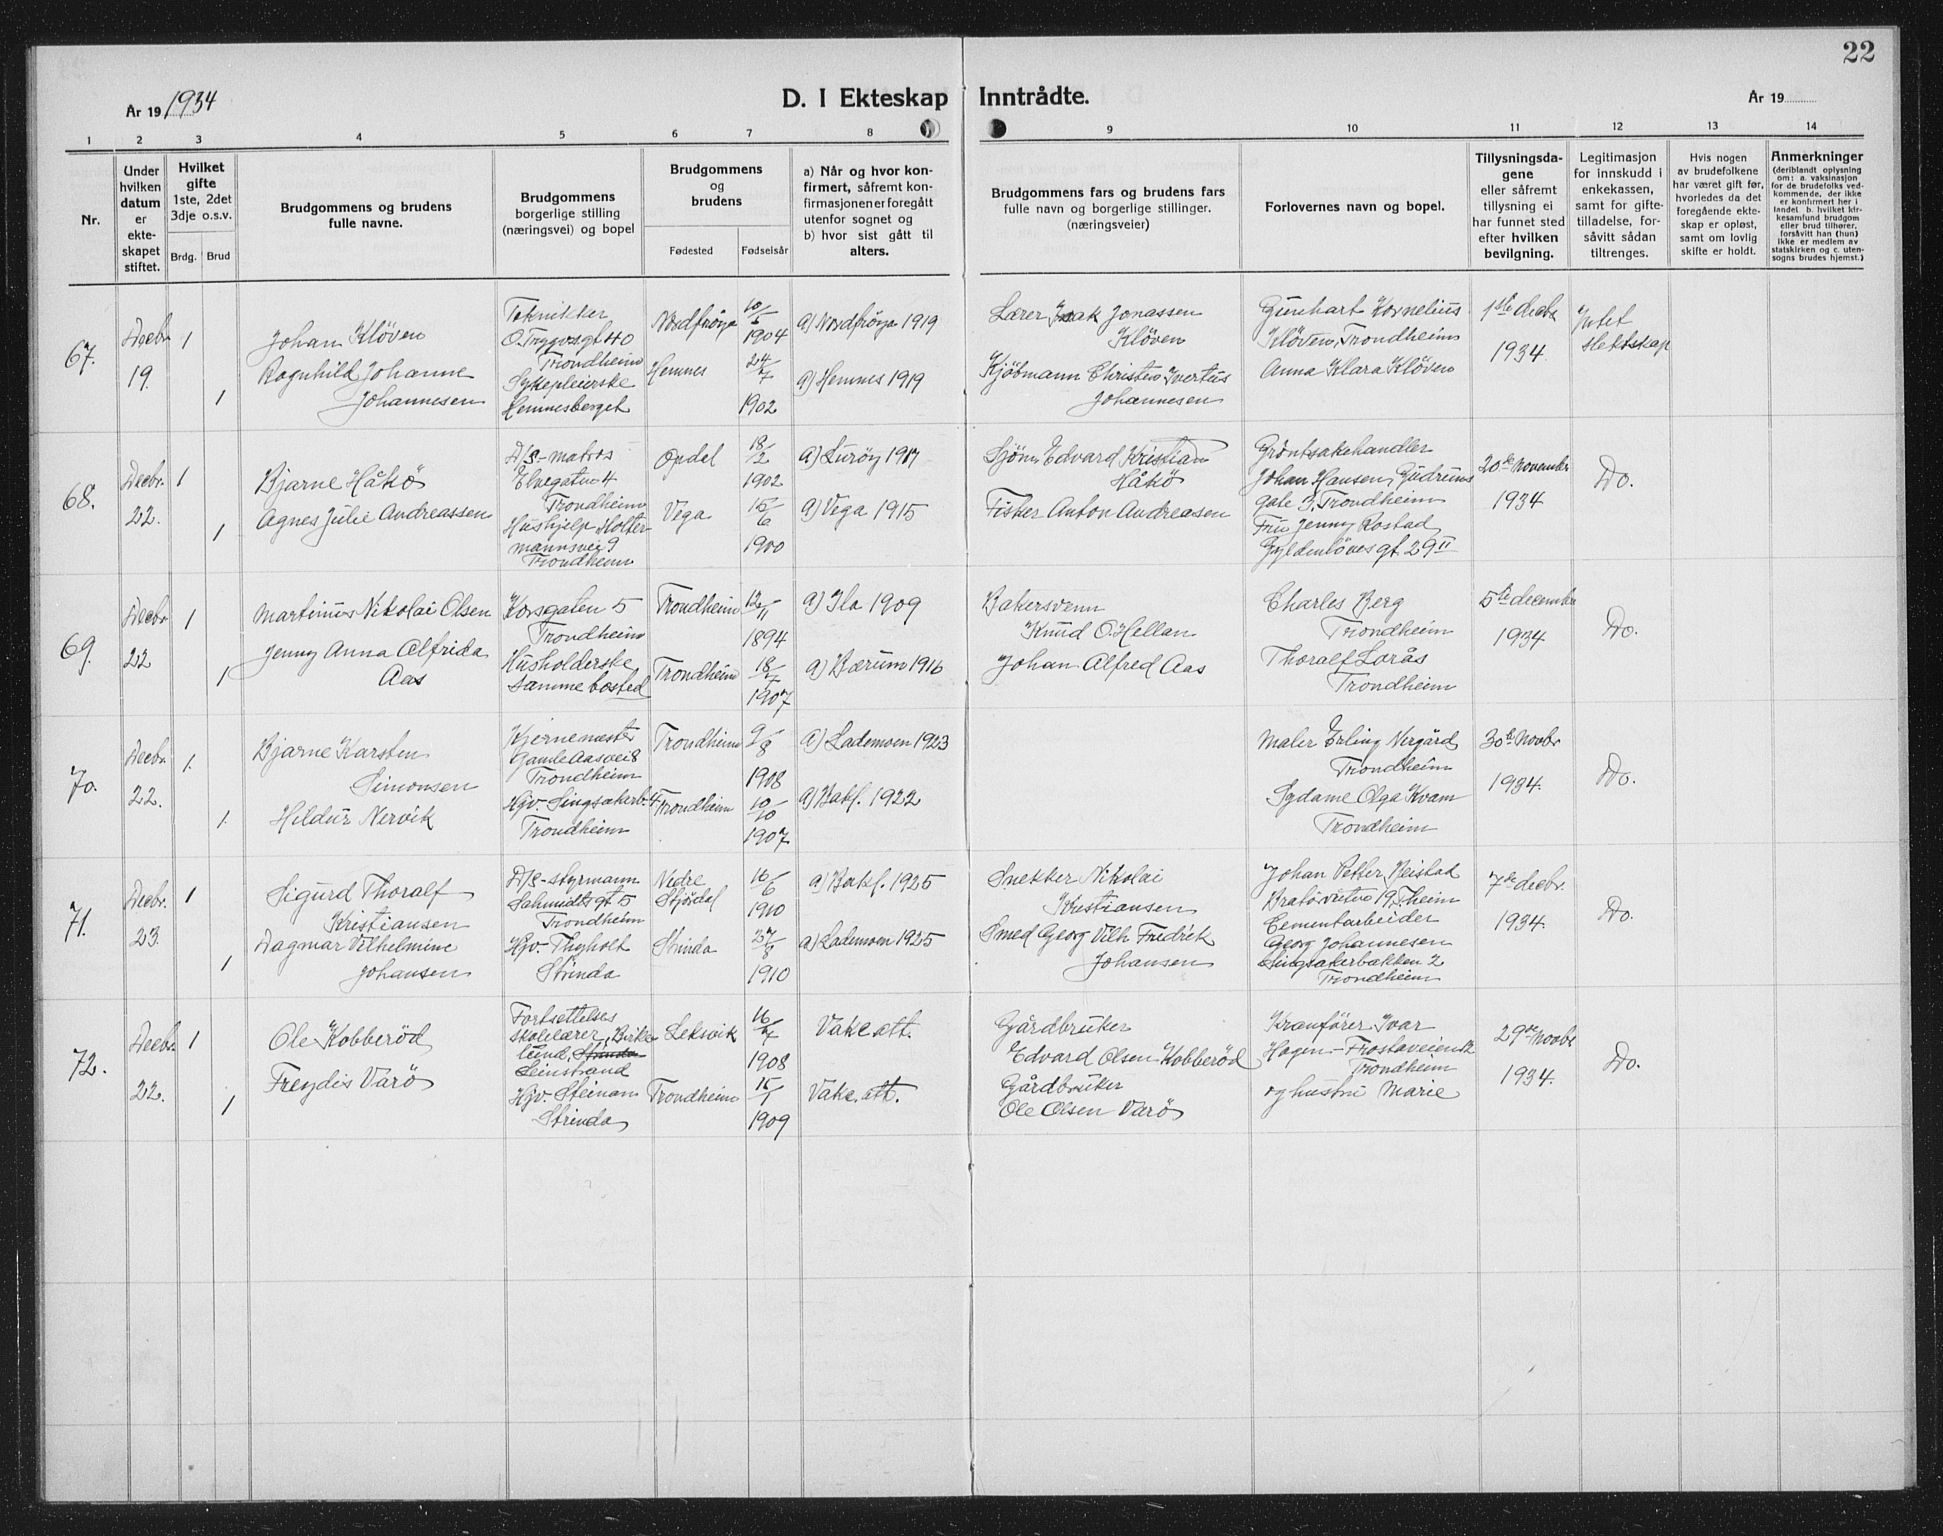 22
År 19 1934
D. I Ekteskap Inntrådte.
År 19
1 2 3 4 5 6 7 8 9 10 11 12 13 14
Nr.
Under hvilken datum er ekteskapet stiftet.
Hvilket gifte 1ste, 2det 3dje o.s.v.
Brdg. Brud
Brudgommens og brudens fulle navne.
Brudgommens borgerlige stilling (næringsvei) og bopel
Brudgommens og brudens
Fødested Fødselsår
a) Når og hvor konfirmert, såfremt konfirmasjonen er foregått utenfor sognet og b) hvor sist gått til alters.
Brudgommens fars og brudens fars fulle navn og borgerlige stillinger. (næringsveier)
Forlovernes navn og bopel.
Tillysningsdagene eller såfremt tillysning ei har funnet sted efter hvilken bevilgning.
Legitimasjon for innskudd i enkekassen, samt for giftetilladelse, forsåvitt sådan tiltrenges.
Hvis nogen av brudefolkene har været gift før, hvorledes da det foregående ekteskap er opløst, samt om lovlig skifte er holdt.
Anmerkninger (deriblandt oplysning om: a. vaksinasjon for de brudefolks vedkommende, der ikke er konfirmert her i landet b. hvilket kirkesamfund brudgom eller brud tilhører, forsåvitt han (hun) ikke er medlem av statskirken og c. utensogns brudes hjemst.)
67.
Decbr
19.
1
1
Johan Kløven
Ragnhild Johanne
Johannesen
Tekniker
O. Trygvs.gt 40
Trondheim
Sykepleierske
Hemnesberget
Nordfrøya
Hemnes
10/5
1904
24/7
1902
a) Nordfrøya 1919
a) Hemnes 1919
Lærer Isak Jonassen
Kløven
Kjøbmann Christen Ivertus
Johannesen
Gunhart Kornelius
Kløven, Trondheim
Anna Klara Kløven
1ste decbr
1934.
Intet
slektskap
68.
Decbr.
22.
1
1
Bjarne Håkø
Agnes Julie Andreassen
D/S-matros
Elvegaten 4
Trondheim
Hushjelp Holter-
mannsvei 9
Trondheim
Opdal
Vega
18/2
1902
15/6
1900
a) Lurøy 1917
a) Vega 1915
Sjøm. Edvard Kristian
Håkø
Fisker Anton Andreasen
Grøntsakehandler
Johan Hansen, Gudruns
gate 3, Trondheim
Fru Jenny Rostad
Gyldenløves gt. 29 II
20de november
1934
Do.
69.
Decbr
22
1
1
Martinus Nikolai Olsen
Jenny Anna Alfrida
Aas
Korsgaten 5
Trondheim
Husholderske
samme bosted
Trondheim
Trondheim
12/11
1894
18/7
1907
a) Ila 1909
a) Bærum 1916
Bakersvenn
Knud O. Hellan
Johan Alfred Aas
Charles Berg
Trondheim
Thoralf Lorås
Trondheim
5te decembr
1934
Do.
70.
Decbr.
22.
1.
1.
Bjarne Karsten
Simonsen
Hildur Nervik
Kjernemester
Gamle Aasvei 8
Trondheim
Hjv. Singsakerb. 4
Trondheim
Trondheim
Trondheim
9/8
1908
10/10
1907
a) Lademoen 1923
a) Bakl. 1922
Maler Erling Nergård
Trondheim
Sydame Olga Kvam
Trondheim
30te novbr
1934.
Do.
71.
Decbr.
23.
1
1
Sigurd Thoralf
Kristiansen
Dagmar Vilhelmine
Johansen
D/S-styrmann
Schmidts gt 5
Trondheim
Hjv. Thyholt
Strinda
Nedre
Stjørdal
Strinda
16/6
1910
27/8
1910
a) Bakl. 1925
a) Lademoen 1925
Snekker Nikolai
Kristiansen
Smed Georg Vilh Fredrik
Johansen
Johan Petter Neistad
Bratørveiten 19, T.heim
Cementarbeider
Georg Johannesen
Singsakerbakken 2
Trondheim
7de decbr.
1934.
Do.
72.
Decbr.
22.
1
1
Ole Kobberød
Freydis Varø
Fortsettelses
skolelærer, Birke
lund, Strinda
Leinstrand
Hjv. Steinan
Strinda
Leksvik
Trondheim
1908
15/1
1909
Vakc. att.
Vakc. att.
Gårdbruker
Edvard Olsen Kobberød
Gårdbruker
Ole Olsen Varø
Kranfører Ivar
Hagen - Frostaveien 12
Trondheim
og hustru Marie
29de novbr
1934.
Do.